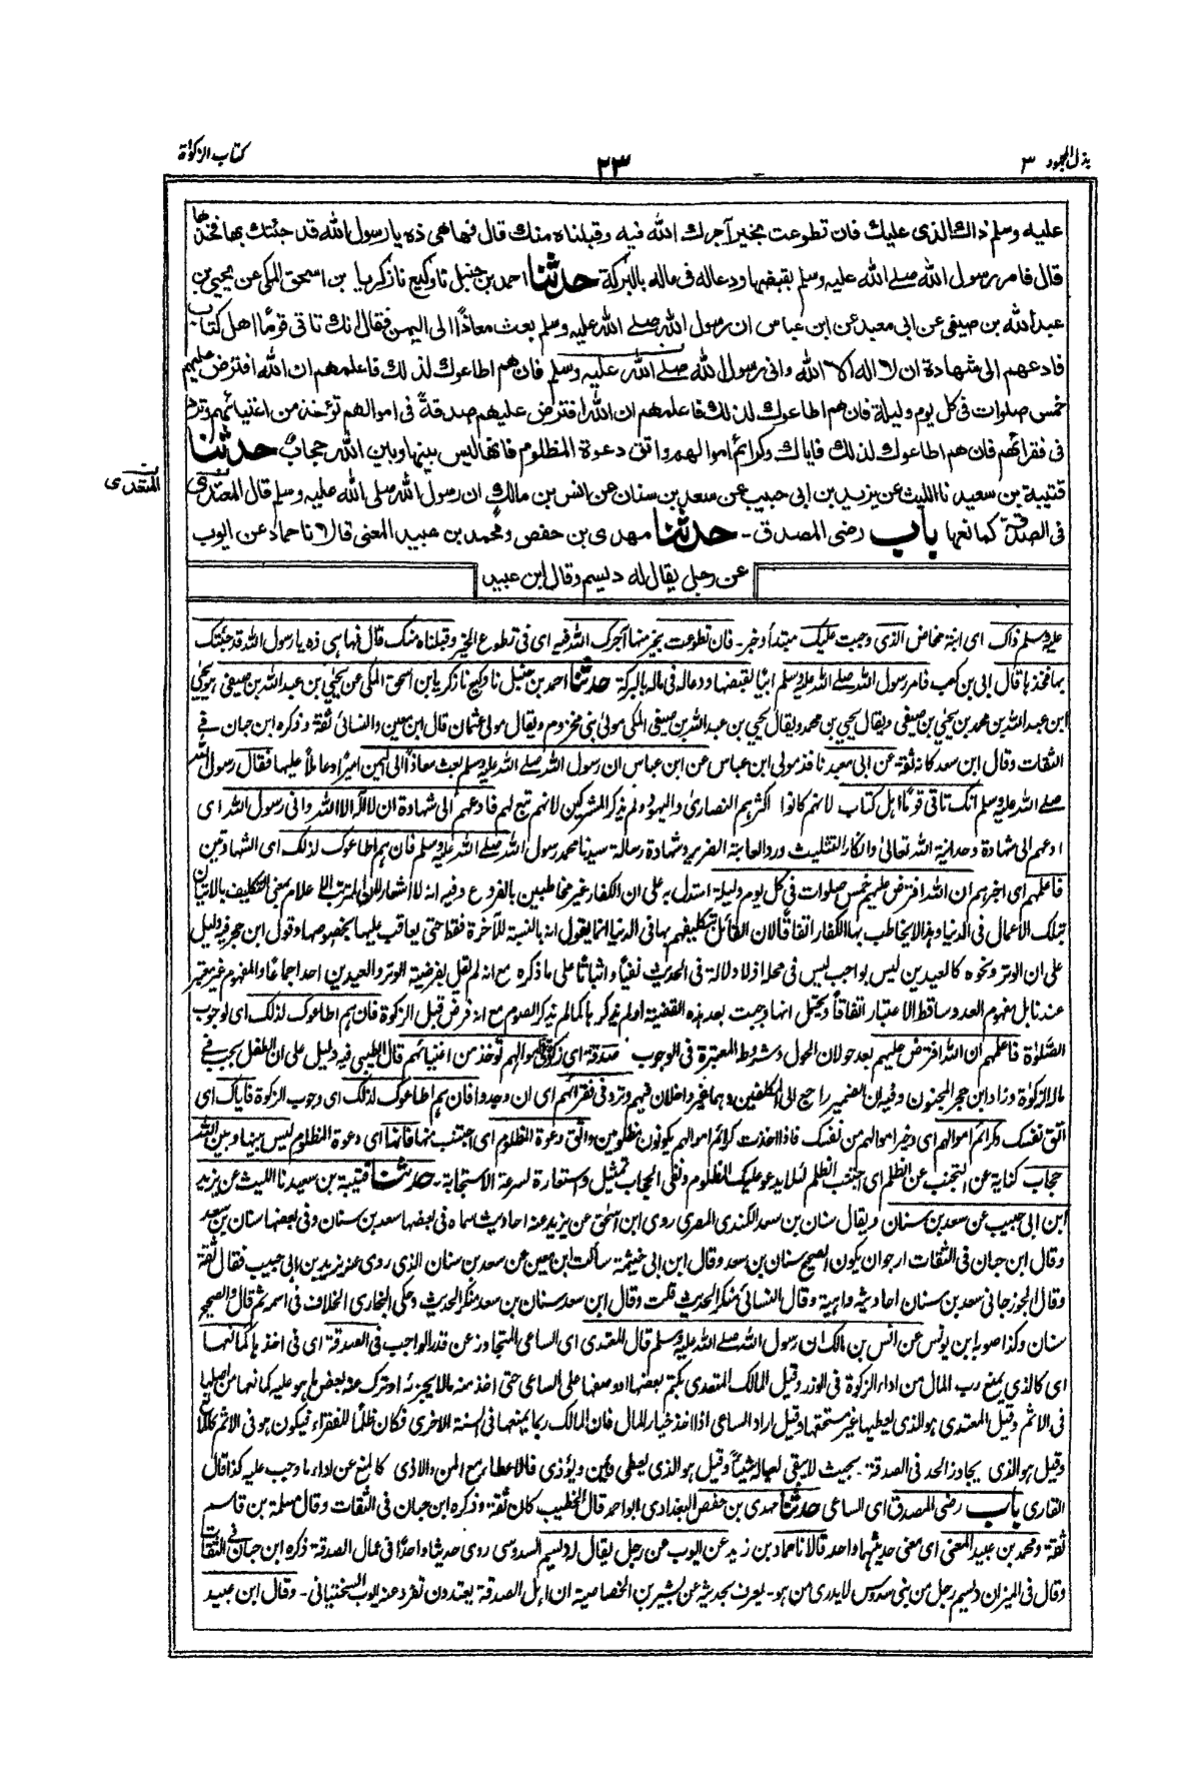 بذل المجهود ٣
٢٣
كتاب الزكوة
عليه وسلم ذاك الذى عليك فان تطوعت بخير آجرك الله فيه وقبلناه منك قال فها هى ذه يا رسول الله قد جئتك بها فخذها
قال فامر رسول الله صلے الله عليه وسلم بقبضها ودعاله فى ماله بالبركة حدثنا احمد بن حنبل نا وكيع نا زكريا بن اسحق المكى عن يحيى بن
عبد الله بن صيفى عن ابى معبد عن ابن عباس ان رسول الله صلے الله عليه وسلم بعث معاذًا الى اليمن فقال انك تاتى قومًا اهل كتاب
فادعهم الى شهادة ان لا اله الا الله وانى رسول الله صلے الله عليه وسلم فان هم اطاعوك لذلك فاعلمهم ان الله افترض عليهم
خمس صلوات فى كل يوم وليلة فان هم اطاعوك لذلك فاعلمهم ان الله افترض عليهم صدقةً فى اموالهم تؤخذ من اغنيائهم وترد
فى فقرائهم فان هم اطاعوك لذلك فاياك وكرائم اموالهم واتق دعوة المظلوم فانها ليس بينها وبين الله حجاب حدثنا
قتيبة بن سعيد نا الليث عن يزيد بن ابى حبيب عن سعد بن سنان عن انس بن مالك ان رسول الله صلى الله عليه وسلم قال المعتدى
المتعدى
فى الصدقة كمانعها باب رضى المصدق - حدثنا مهدى بن حفص ومحمد بن عبيد المعنى قالا نا حماد عن ايوب
عن رجل يقال له ديسم وقال ابن عبيد
عليه وسلم ذاك اى ابنة مخاض الذى وجبت عليك مبتدأ وخبر - فان تطوعت بخير منها آجرك الله فيه اى فى تطوع الخير وقبلناه منك قال فها هى ذه يا رسول الله قد جئتك
بها فخذها قال ابى بن كعب فامر رسول الله صلے الله عليه وسلم ابيًا بقبضها ودعا له فى ماله بالبركة حدثنا احمد بن حنبل نا وكيع نا زكريا بن اسحق المكى عن يحيى بن عبد الله بن صيفى هو يحيى
ابن عبد الله بن محمد بن يحيى بن صيفى ويقال يحيى بن محمد ويقال يحيى بن عبد الله بن صيفى المكى مولى بنى مخزوم ويقال مولى عثمان قال ابن معين والنسائى ثقة وذكره ابن حبان فے
الثقات وقال ابن سعد كان ثقة - عن ابى معبد نافذ مولى ابن عباس عن ابن عباس ان رسول الله صلے الله عليه وسلم بعث معاذًا الى اليمن اميرًا وعاملًا عليها فقال رسول الله
صلے الله عليه وسلم انك تاتى قومًا اهل كتاب لانهم كانوا اكثرهم النصارى واليهود ولم يذكر المشركين لانهم تبع لهم فادعهم الى شهادة ان لا اله الا الله وانى رسول الله اى
ادعهم الى شهادة وحدانية الله تعالى وانكار التثليث ورد العامة وشهادة رسالة سيدنا محمد رسول الله صلے الله عليه وسلم فان هم اطاعوك لذلك اى الشهادتين
فاعلمهم اى اخبرهم ان الله افترض عليهم خمس صلوات فى كل يوم وليلة استدل به على ان الكفار غير مخاطبين بالفروع وفيه انه لا اشعار لترتب الاعلام بنفى التكليف بالاتيان
بتلك الاعمال فى الدنيا وهذا لا يخاطب بها الكفار اتفاقًا لان القائل بتكليفهم بها فى الدنيا انما يقول انه بالنسبة للآخرة فقط حتى يعاقب عليها بخصوصها وقول ابن حجر فيه دليل
على ان الوتر ونحوه كالعيدين ليس بواجب ليس فى محله اذ لا دلالة فى الحديث نفيًا واثباتًا على ما ذكره مع انه لم يقل بفرضية الوتر والعيدين احد اجماعًا والمفهوم غير معتبر
عندنا بل مفهوم العدد ساقط الاعتبار اتفاقًا ويحتمل انها وجبت بعد هذه القضية او لم يذكرها كما لم يذكر الصوم مع انه فرض قبل الزكوة فان هم اطاعوك لذلك اى لوجوب
الصلوة فاعلمهم ان الله افترض عليهم بعد حولان الحول وشروط المعتبرة فى الوجوب صدقة اى زكوة فى اموالهم تؤخذ من اغنيائهم قال الطيبى فيه دليل على ان الطفل يجب فے
ماله الزكوة وزاد ابن حجر المجنون وفيه ان الضمير راجع الى المكلفين وهما غير داخلان فيهم وترد فى فقرائهم اى ان وجدوا فان هم اطاعوك لذلك اى وجوب الزكوة فاياك اى
اتق نفسك وكرائم اموالهم اى وخير اموالهم من نفسك فاذا اخذت كرائم اموالهم يكونون مظلومين واتق دعوة المظلوم اى اجتنب منها فانها اى دعوة المظلوم ليس بينها وبين الله
حجاب كناية عن التجنب عن الظلم اى اجتنب الظلم لئلا يدعو عليك المظلوم ونفى الحجاب تمثيل واستعارة لسرعة الاستجابة - حدثنا قتيبة بن سعيد نا الليث عن يزيد
ابن ابى حبيب عن سعد بن سنان ويقال سنان بن سعد الكندى المصرى روى ابن اسحق عن يزيد عنه احاديث سماه فى بعضها سعد بن سنان وفى بعضها سنان بن سعد
وقال ابن حبان فى الثقات ارجو ان يكون الصحيح سنان بن سعد وقال ابن ابى خيثمة سألت ابن معين عن سعد بن سنان الذى روى عنه يزيد بن ابى حبيب فقال ثقة
وقال الجوزجانى سعد بن سنان احاديثه واهية وقال النسائى منكر الحديث قلت وقال ابن سعد سنان بن سعد منكر الحديث وحكى البخارى الخلاف فى اسمه ثم قال والصحيح
سنان وكذا صوبه ابن يونس عن انس بن مالك ان رسول الله صلے الله عليه وسلم قال المعتدى اى الساعى المتجاوز عن قدر الواجب فى الصدقة اى فى اخذها كمانعها
اى كالذى يمنع رب المال من اداء الزكوة فى الوزر وقيل المالك المتعدى بكتم بعضها او وصفها على الساعى حتى اخذ منه ما لا يجزئه او ترك عنه بعض ما هو عليه كمانعها من اصلها
فى الاثم وقيل المعتدى هو الذى يعطيها غير مستحقها وقيل اراد الساعى اذا اخذ خيار المال فان المالك ربما يمنعها فى السنة الاخرى فكان ظلمًا للفقراء فيكون هو فى الاثم كالمانع
وقيل هو الذى يجاوز الحد فى الصدقة - بحيث لا يبقى لعياله شيئًا وقيل هو الذى يعطى ويمن ويؤذى فالاعطاء مع المن والاذى كالمنع عن اداء ما وجب عليه كذا قال
القارى باب رضى المصدق اى الساعى حدثنا مهدى بن حفص البغدادى ابو احمد قال الخطيب كان ثقة وذكره ابن حبان فى الثقات وقال مسلمة بن قاسم
ثقة ومحمد بن عبيد المعنى اى معنى حديثهما واحد قالا نا حماد بن زيد عن ايوب عن رجل يقال له ديسم السدوسى روى حديثا واحدًا فى عمال الصدقة ذكره ابن حبان فى الثقات
وقال فى الميزان ديسم رجل من بنى سدوس لا يدرى من هو - يعرف بحديثه عن بشير بن الخصاصية ان اهل الصدقة يعتدون تفرد عنه ايوب السختيانى - وقال ابن عبيد